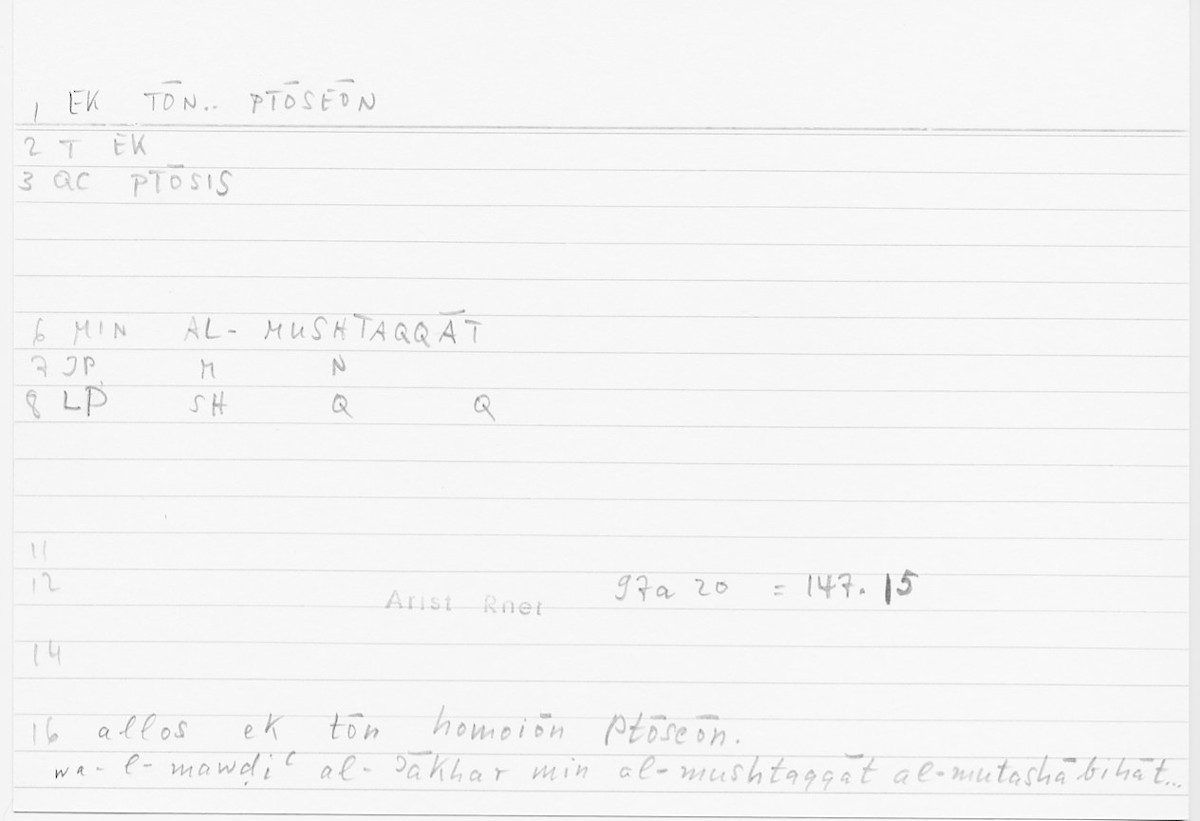 1 EK TŌN.. PTŌSEŌN
2 T EK
3 QC PTŌSIS
6 MIN AL- MUSHTAQQĀT
7 JP M N
8 LP SH Q Q
11
12 Arist Rhet 97a 20 = 147.15
14
16 allos ek tōn homoiōn Ptōseōn.
wa-l-mawḍiʿ al-ʾākhar min al-mushtaqqāt al-mutashābihāt...